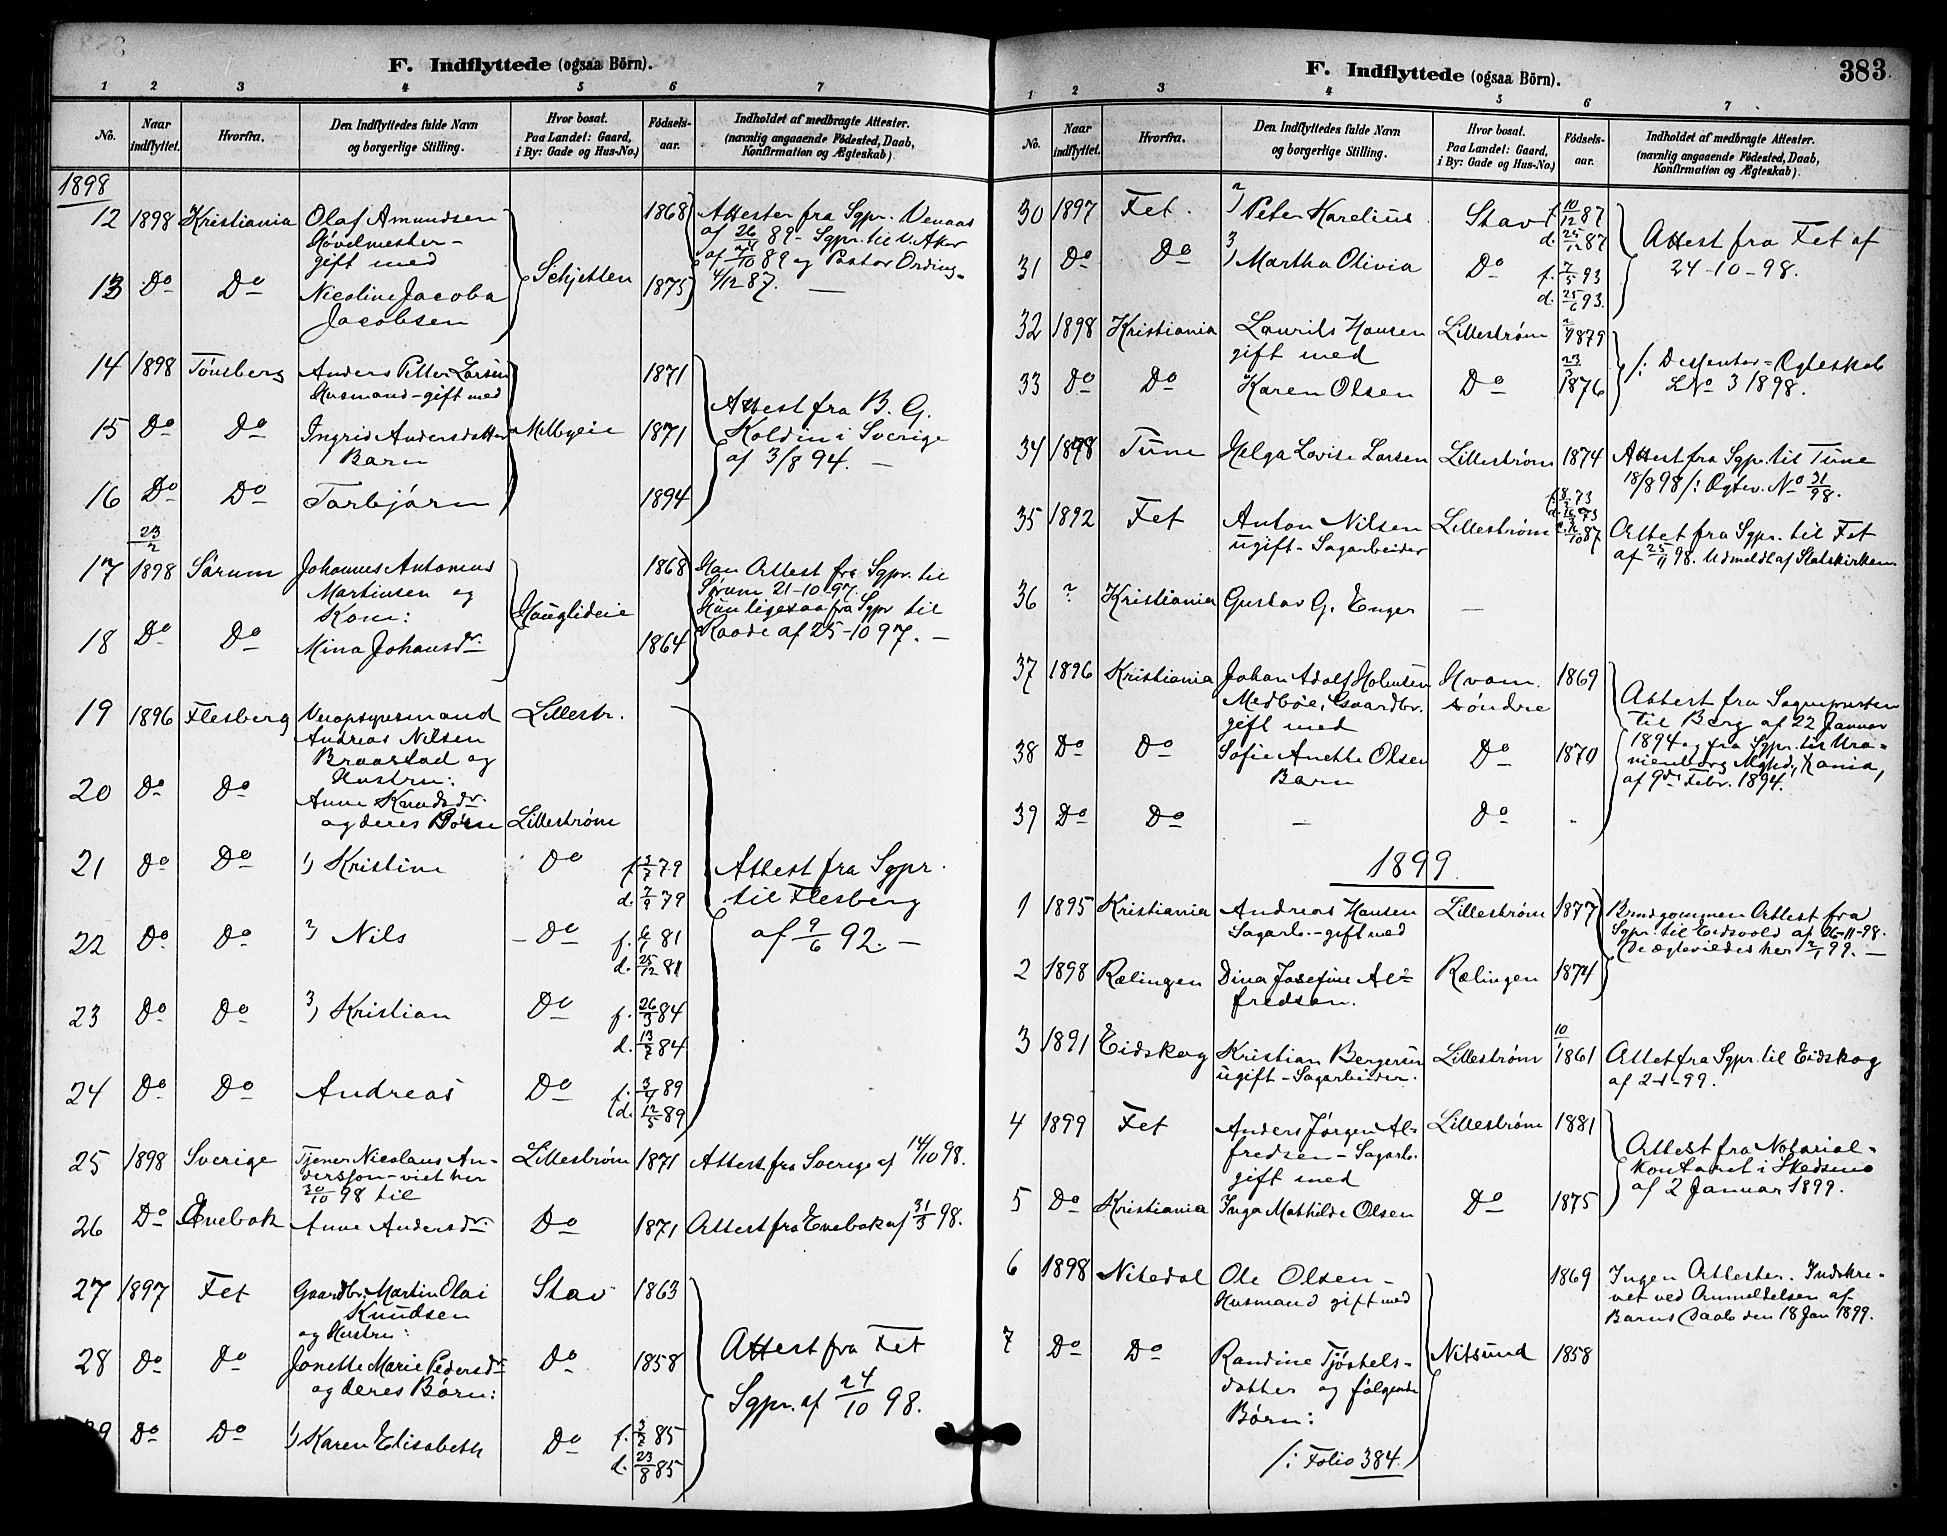 F. Indflyttede (ogsaa Börn).
1 2 3 4 5 6 7
No. Naar indflyttet. Hvorfra. Den Indflyttedes fulde Navn og borgerlige Stilling. Hvor bosat. Paa Landet: Gaard, i By: Gade og Hus-No.) Fødsels-aar. Indholdet af medbragte Attester. (navnlig angaaende Födested, Daab, Konfirmation og Ægteskab)
1898
12 1898 Kristiania Olaf Amundsen 1868 Attester fra Sgpr. Venaas
Hövelmester- af 26/ 89- Sgpr. til V. Aker
gift med Schjetten af /10 89 og Pastor Ording-
13 Do Do Nicoline Jacoba 1875 4/12 87. —
Jacobsen
14 1898 Tönsberg Anders Petter Larsen 1871
Husmand-gift med Attest fra B. G.
15 Do Do Ingrid Andersdatter Melbyeie 1871 Koldin i Sverige
Barn af 3/8 94. —
16 Do Do Torbjörn 1894
23/2
17 1898 Sørum Johannes Antonius 1868 Han Attest fra Sgpr. til
Martinsen og Sørum 21-10-97.
Kone: Hauglideie Hun ligesaa fra Sgpr til
18 Do Do Mina Johansdr. 1864 Raade af 25-10 97. —
19 1896 Flesberg Lillestr.
Andreas Nilsen
Braastad og
Hustru:
20 Do Do Anne Knudsdr.
og deres Børn Lillestrøm
21 Do Do 1) Kristine Do f. 79 Attest fra Sgpr.
d. 79 til Flesberg
22 Do Do 2) Nils - Do f. 6/ 81 af 9/6 92. —
d. 25/12 81
23 Do Do 3) Kristian Do f. 26/3 84
d. 13/ 84
24 Do Do Andreas Do f. 3/4 89
d. 12/5 89
25 1898 Sverige Tjener Nicolaus An- Lillestrøm 1871 Attest fra Sverige af 14/10 98.
dersson-viet her
30/10 98 til
26 Do Enebak Anne Andersdr. Do 1871 Attest fra Enebak af 31/3 98.
27 1897 Fet Gaardbr. Martin Olai Stav 1863
Knudsen
og Hustru: Attest fra Fet
28 Do Do Jonette Marie Pedersdr Do 1858 Sgpr. af 24/10 98.
og deres Børn:
29 Do Do 1) Karen Elisabeth Do f. 85
d. 23/8 85
F. Indflyttede (ogsaa Börn). 383
1 2 3 4 5 6 7
No. Naar indflyttet. Hvorfra. Den Indflyttedes fulde Navn og borgerlige Stilling. Hvor bosat. Paa Landet: Gaard, i By: Gade og Hus-No.) Fødsels-aar. Indholdet af medbragte Attester. (navnlig angaaende Födested, Daab, Konfirmation og Ægteskab).
30 1897 Fet. 2) Peter Karelius Stav f. 10/12 87
d. 25/12 87 Attest fra Fet af
31 Do Do 3) Martha Olivia Do f. 7/5 93 24-10-98.
d. 25/6 93
32 1898 Kristiania Laurits Hansen Lillestrøm 1879
gift med /: Dessenter-Ægteskab
33 Do Do Karen Olsen Do 23/3 1876 LNo 3 1898.
34 1898 Tune Helga Lovise Larsen Lillestrøm 1874 Attest fra Sgpr. til Tune
18/8 98 /: Ægtev. No 31/98.
35 1892 Fet Anton Nilsen Lillestrøm f. 73 Attet fra Sgpr. til Fet
ugift-Sagarbeider af 25/11 98. Udmeldt af Statskirken
36 ? Kristiania Gustav G. Enger —
37 1896 Kristiania Johan Adolf Holmsen Hvam 1869 Attest fra Sogneprsten
Medböe, Gaardbr. söndre til Berg af 22 Januar
gift med 1894 og fra Sgpr. til Ura-
38 Do Do Sofie Anette Olsen Do 1870 nienborg Mghd, Kania,
Barn af 9de Febr. 1894.
39 Do Do — Do
1899
1 1895 Kristiania Andreas Hansen Lillestrøm 1877 Brudgommen Attest fra
Sagarb.-gift med Sgpr. til Eidsvold af 26-11-98.
De ægteviedes her 2/1 99. —
2 1898 Rælingen Dina Josefine Al- Rælingen 1874
fredsen.
3 1891 Eidskog Kristian Bergersen Lillestrøm 10/ 1861 Attet fra Sgpr. til Eidskog
ugift-Sagarbeider. af 2-1-99.
4 1899 Fet Anders Jørgen Al- Lillestrøm 1881
fredsen-Sagarb. Attest fra Notarial-
gift med kontoret i Skedsmo
5 Do Kristiania Inga Mathilde Olsen Do 1875 af 2 Januar 1899.
6 1898 Nitedal Ole Olsen- 1869 Ingen Attester. Indskre-
Husmand gift med vet ved Anmeldelsen af
Barns Daab den 18 Jan 1899.
7 Do Do Randine Tjöstels- Nitsund 1858
datter og følgende
Børn:
/: Folio 384.